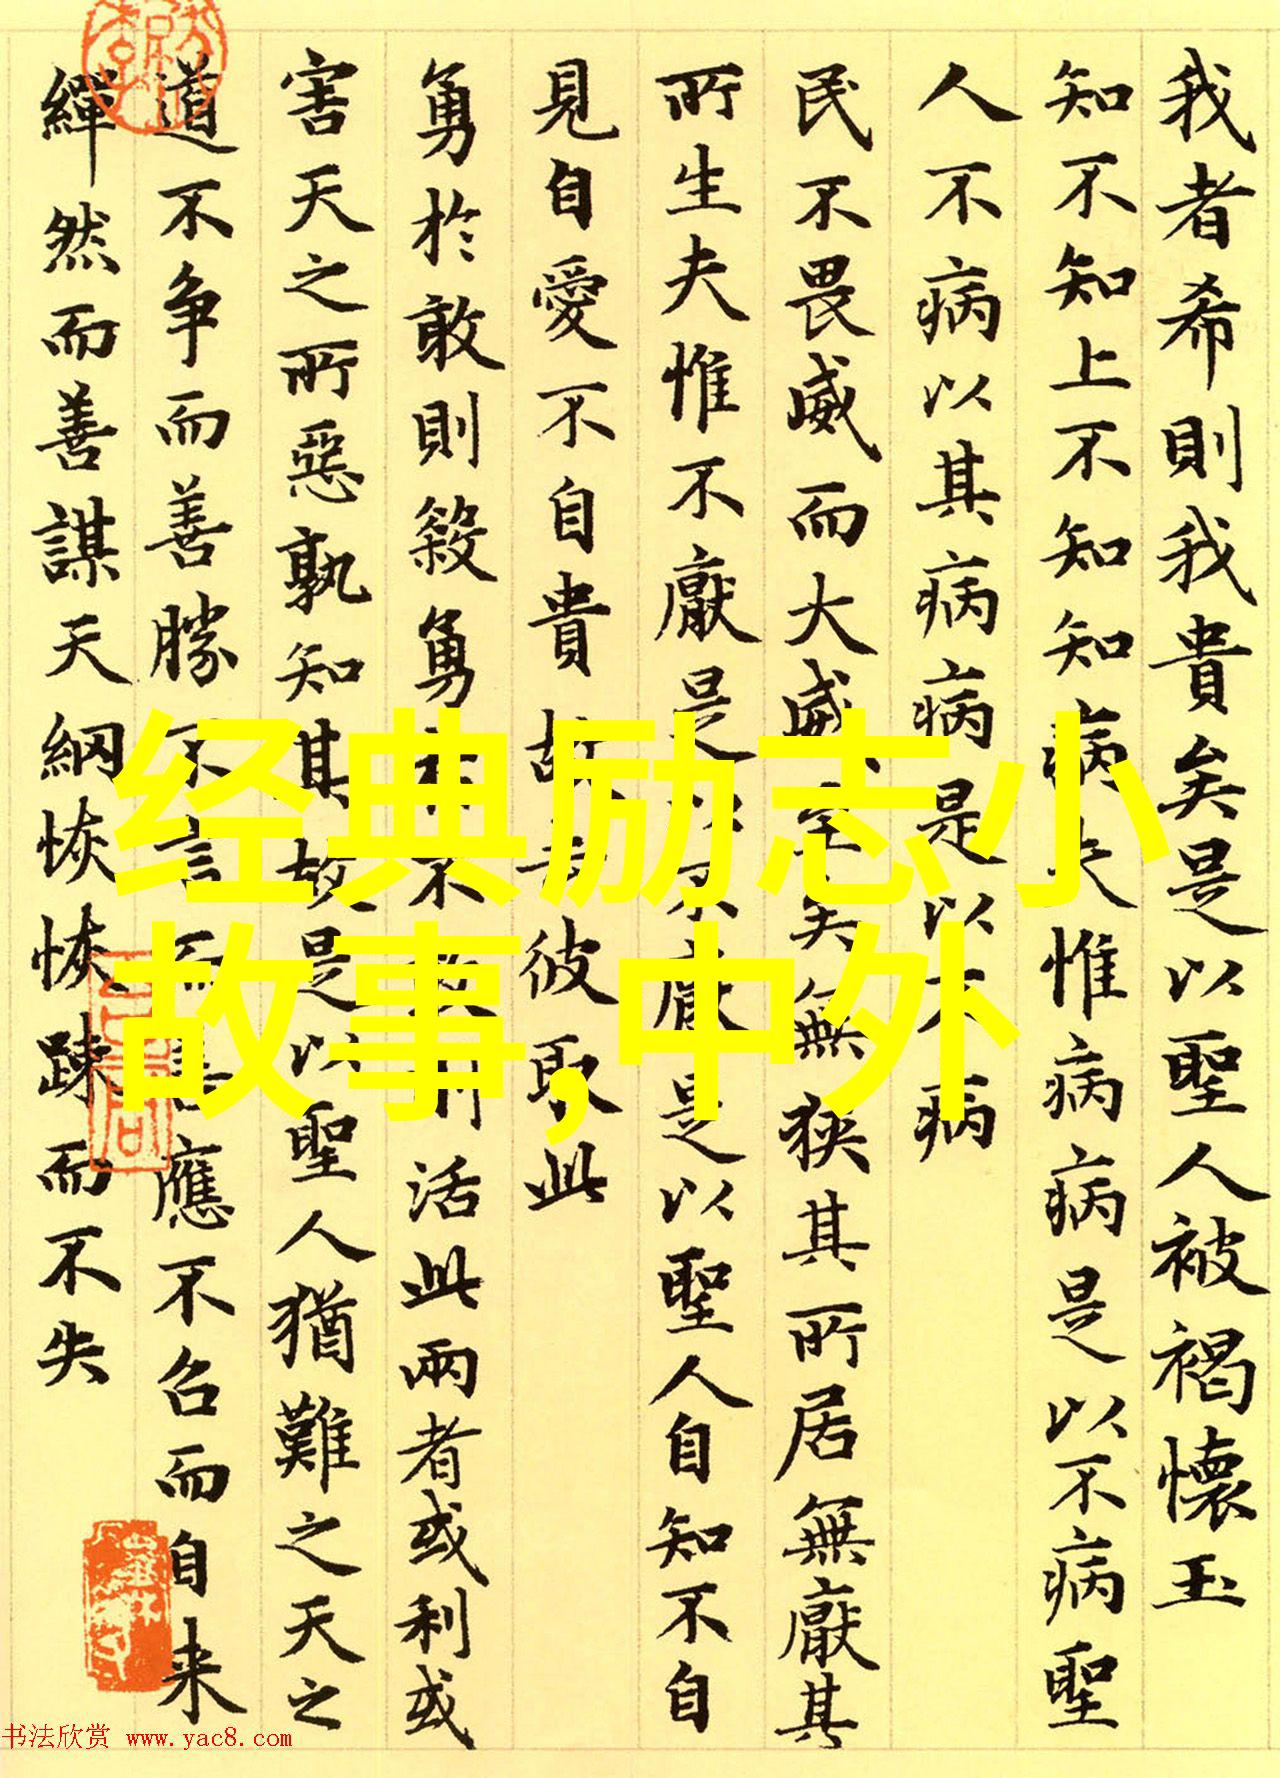 我者希則我貴矣是以聖人被褐懷玉
知不知上不知知病夫惟病病是以不病聖
人不病以其病病是以不病
民不畏威而大威至矣無狹其所居無厭其
所生夫惟不厭是以不厭是以聖人自知不自
見自愛不自貴故去彼取此
勇於敢則殺勇於不敢則活此兩者或利或
害天之所惡孰知其故是以聖人猶難之天之
道不争而善勝不言而善應不召而自来
繟然而善謀天網恢恢踈而不失
经典励志小
故事,中外
书法欣赏 www.yac8.com